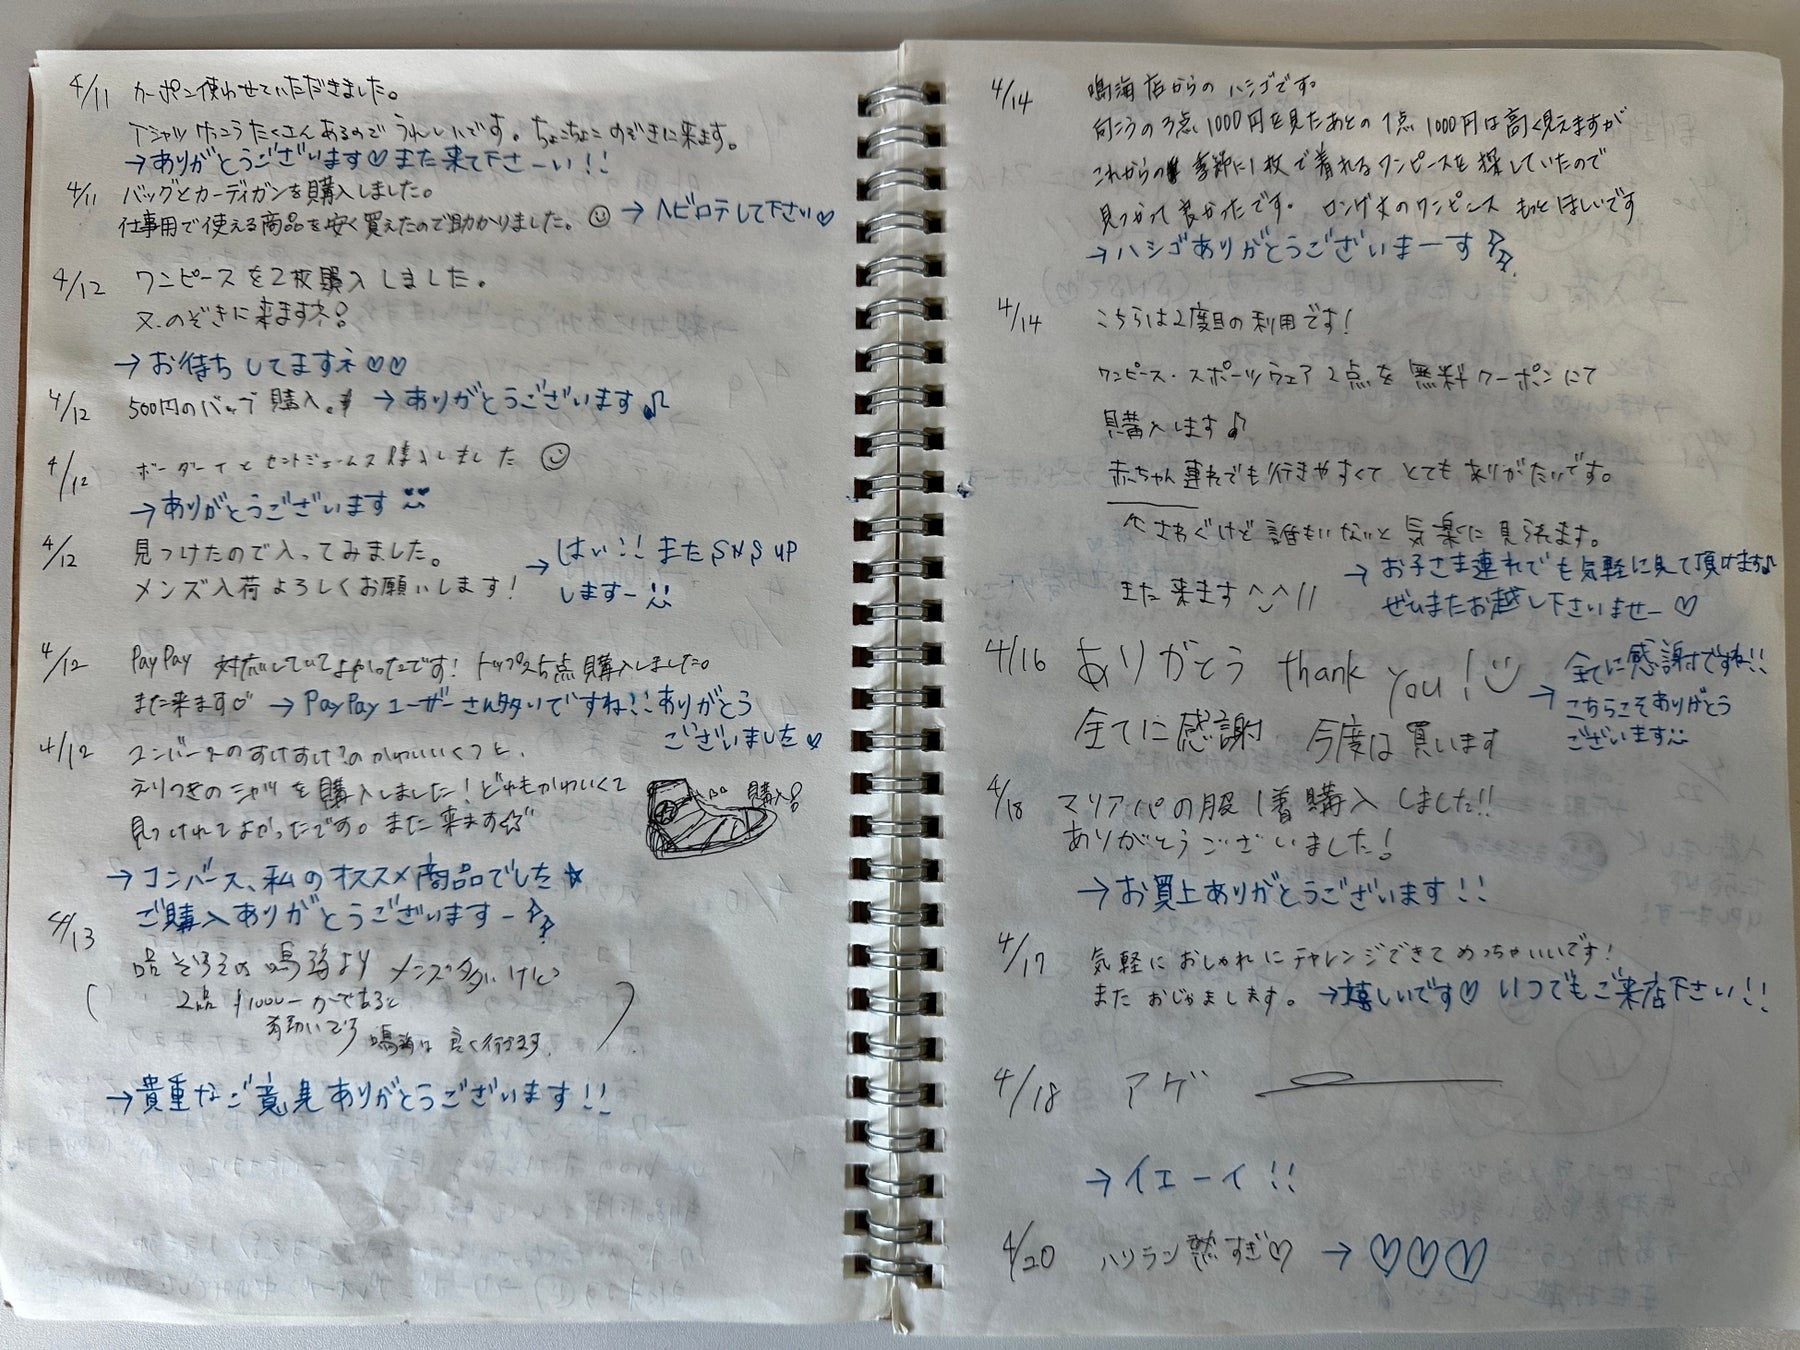 4/11 クーポン使わせていただきました。
Tシャツけっこうたくさんあるのでうれしいです。ちょこちょこのぞきに来ます。
→ありがとうございます♡また来て下さーい!!
4/11 バッグとカーディガンを購入しました。
仕事用で使える商品を安く買えたので助かりました。☺ →ヘビロテして下さい♡
4/12 ワンピースを2枚購入しました。
又、のぞきに来ますネ!
→お待ちしてますネ♡♡
4/12 500円のバッグ購入。 →ありがとうございます♪
4/12 ボーダーTとセントジェームス購入しました ☺
→ありがとうございます
4/12 見つけたので入ってみました。
メンズ入荷よろしくお願いします!
→はい!!またSNS UP
しますー
4/12 PayPay 対応していてよかったです! トップス5点購入しました。
また来ます♡ →PayPayユーザーさん多いですね!!ありがとう
ございました♡
4/12 コンバースのすけすけ?のかわいいくつと、
えりつきのシャツを購入しました!どれもかわいくて
見つけれてよかったです。また来ます☆
購入!
→コンバース、私のオススメ商品でした★
ご購入ありがとうございますー
4/13 品ぞろえの 鳴海より メンズ多いけど
(2品 ¥1000-かであると
有難いです 鳴海は良く行きます。)
→貴重なご意見ありがとうございます!!
4/14 鳴海店からのハシゴです。
向こうの3点1000円を見たあとの1点1000円は高く見えますが
これからの季節に1枚で着れるワンピースを探していたので
見つかって良かったです。 ロング丈のワンピース もっとほしいです
→ハシゴありがとうございまーす
4/14 こちらは2度目の利用です!
ワンピース・スポーツウェア 2点を無料クーポンにて
購入します♪
赤ちゃん連れでも行きやすくて とてもありがたいです。
↑さわぐけど誰もいないと気楽に見られます。
また来ます^_^//
→お子さま連れでも気軽に見て頂けます♪
ぜひまたお越し下さいませー♡
4/16 ありがとう thank you!
全てに感謝 今度は買います
→全てに感謝ですね!!
こちらこそありがとう
ございます
4/18 マリアパの服1着購入しました!!
ありがとうございました!
→お買上ありがとうございます!!
4/17 気軽におしゃれにチャレンジできてめっちゃいいです!
またおじゃまします。 →嬉しいです♡いつでもご来店下さい!!
4/18 アゲ
→イエーイ!!
4/20 ハリラン熱すぎ♡ →♡♡♡